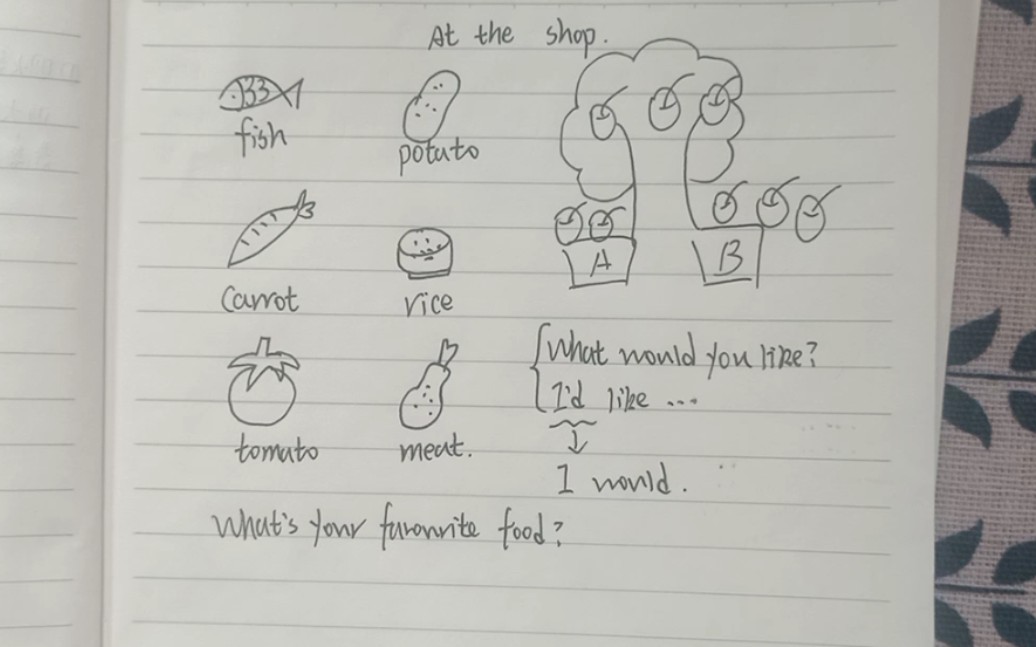 At the shop.
fish
potato
carrot
rice
A
B
tomato
meat.
What would you like?
I'd like ...
I would.
What's your favourite food?